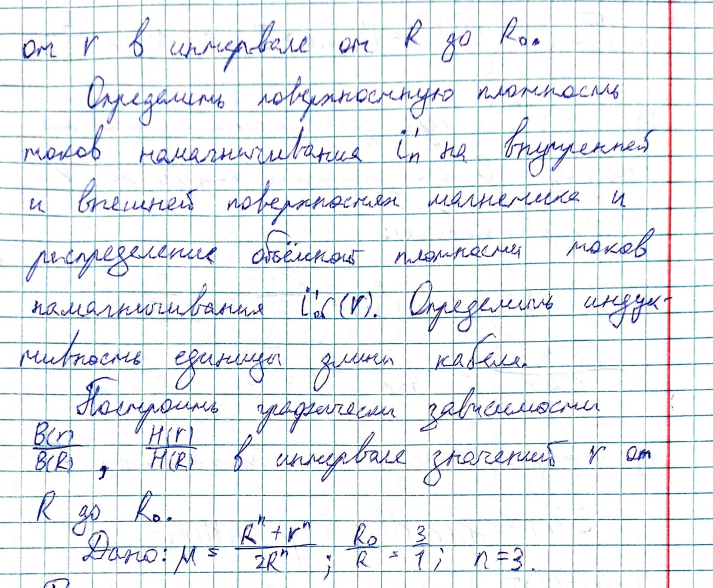 от r в интервале от R до R₀.
Определить поверхностную плотность
токов намагничивания i'ₙ на внутренней
и внешней поверхностях магнетика и
распределение объёмной плотности токов
намагничивания i'об(r). Определить индук-
тивность единицы длины кабеля.
Построить графически зависимости
B(r)/B(R), H(r)/H(R) в интервале значений r от
R до R₀.
Дано: μ = (Rⁿ + rⁿ)/(2Rⁿ); R₀/R = 3/1; n=3.